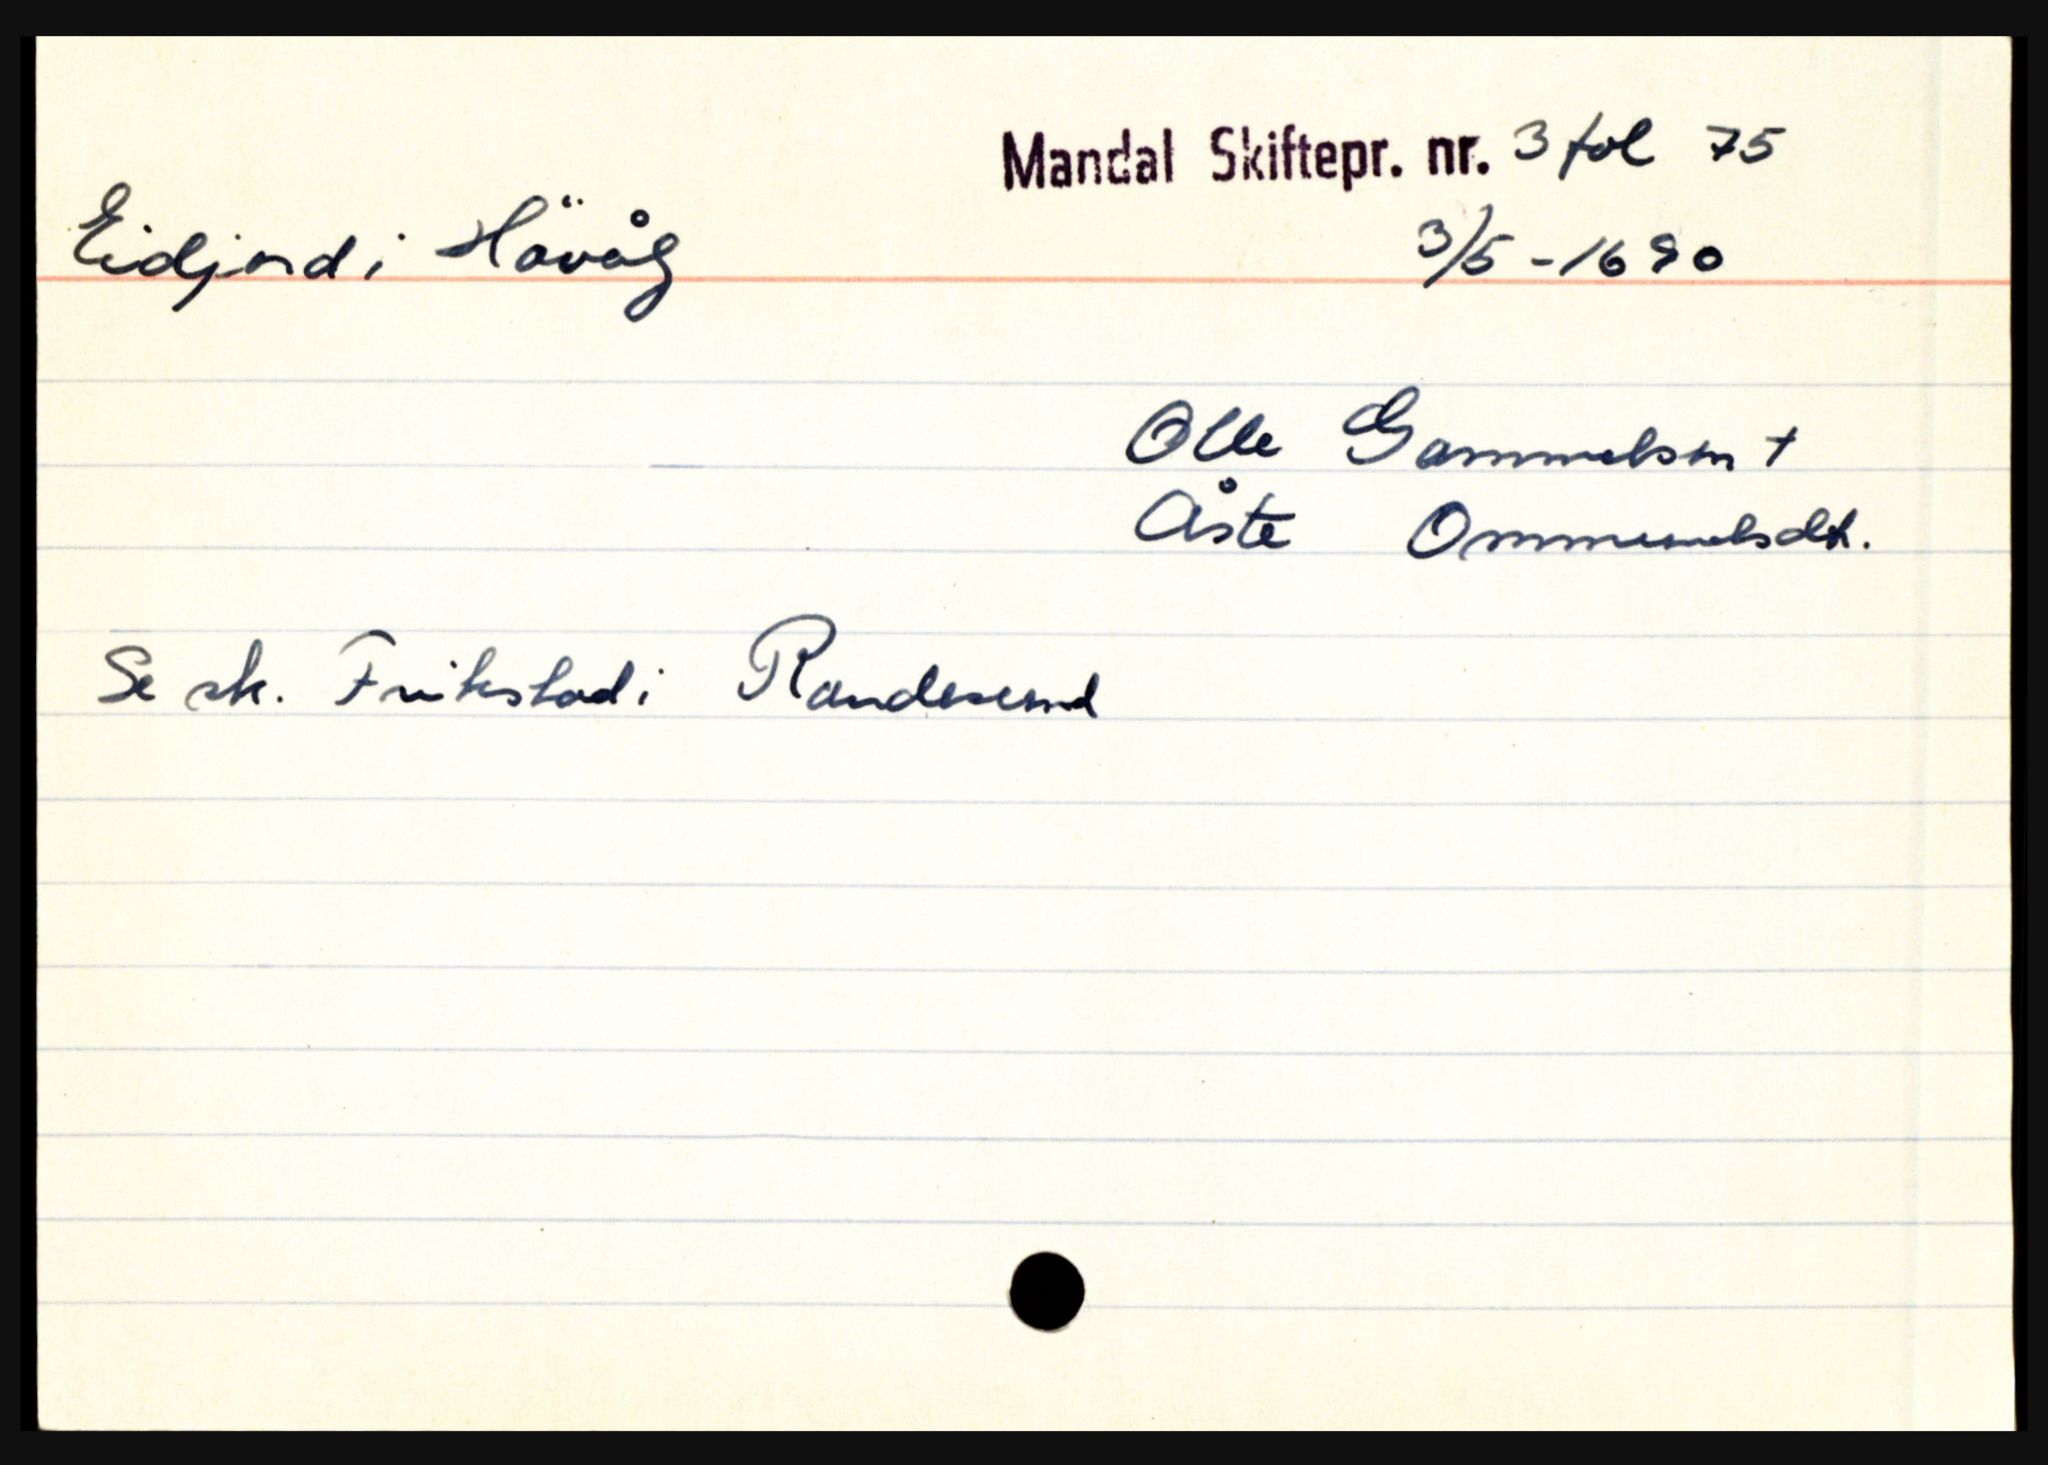 Mandal Skiftepr. nr. 3 fol 75
Eidjord i Hövåg 3/5 - 1690
Olle Gammelsen +
Åste Ommundsdt.
Se sk. Frikstad i Randesund